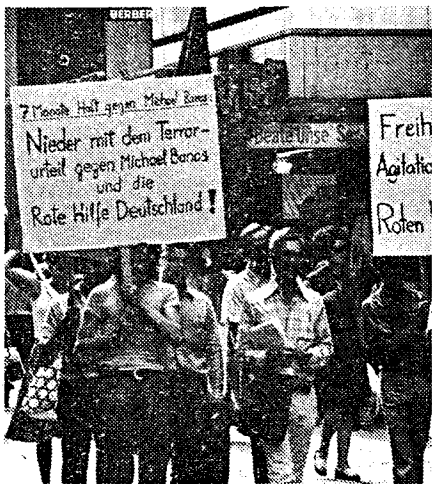 GERBER
7 Monate Haft gegen Michael Banas:
Nieder mit dem Terror-
urteil gegen Michael Banas
und die
Rote Hilfe Deutschland!
Beate Uhse
Freih
Agitatio
Roten